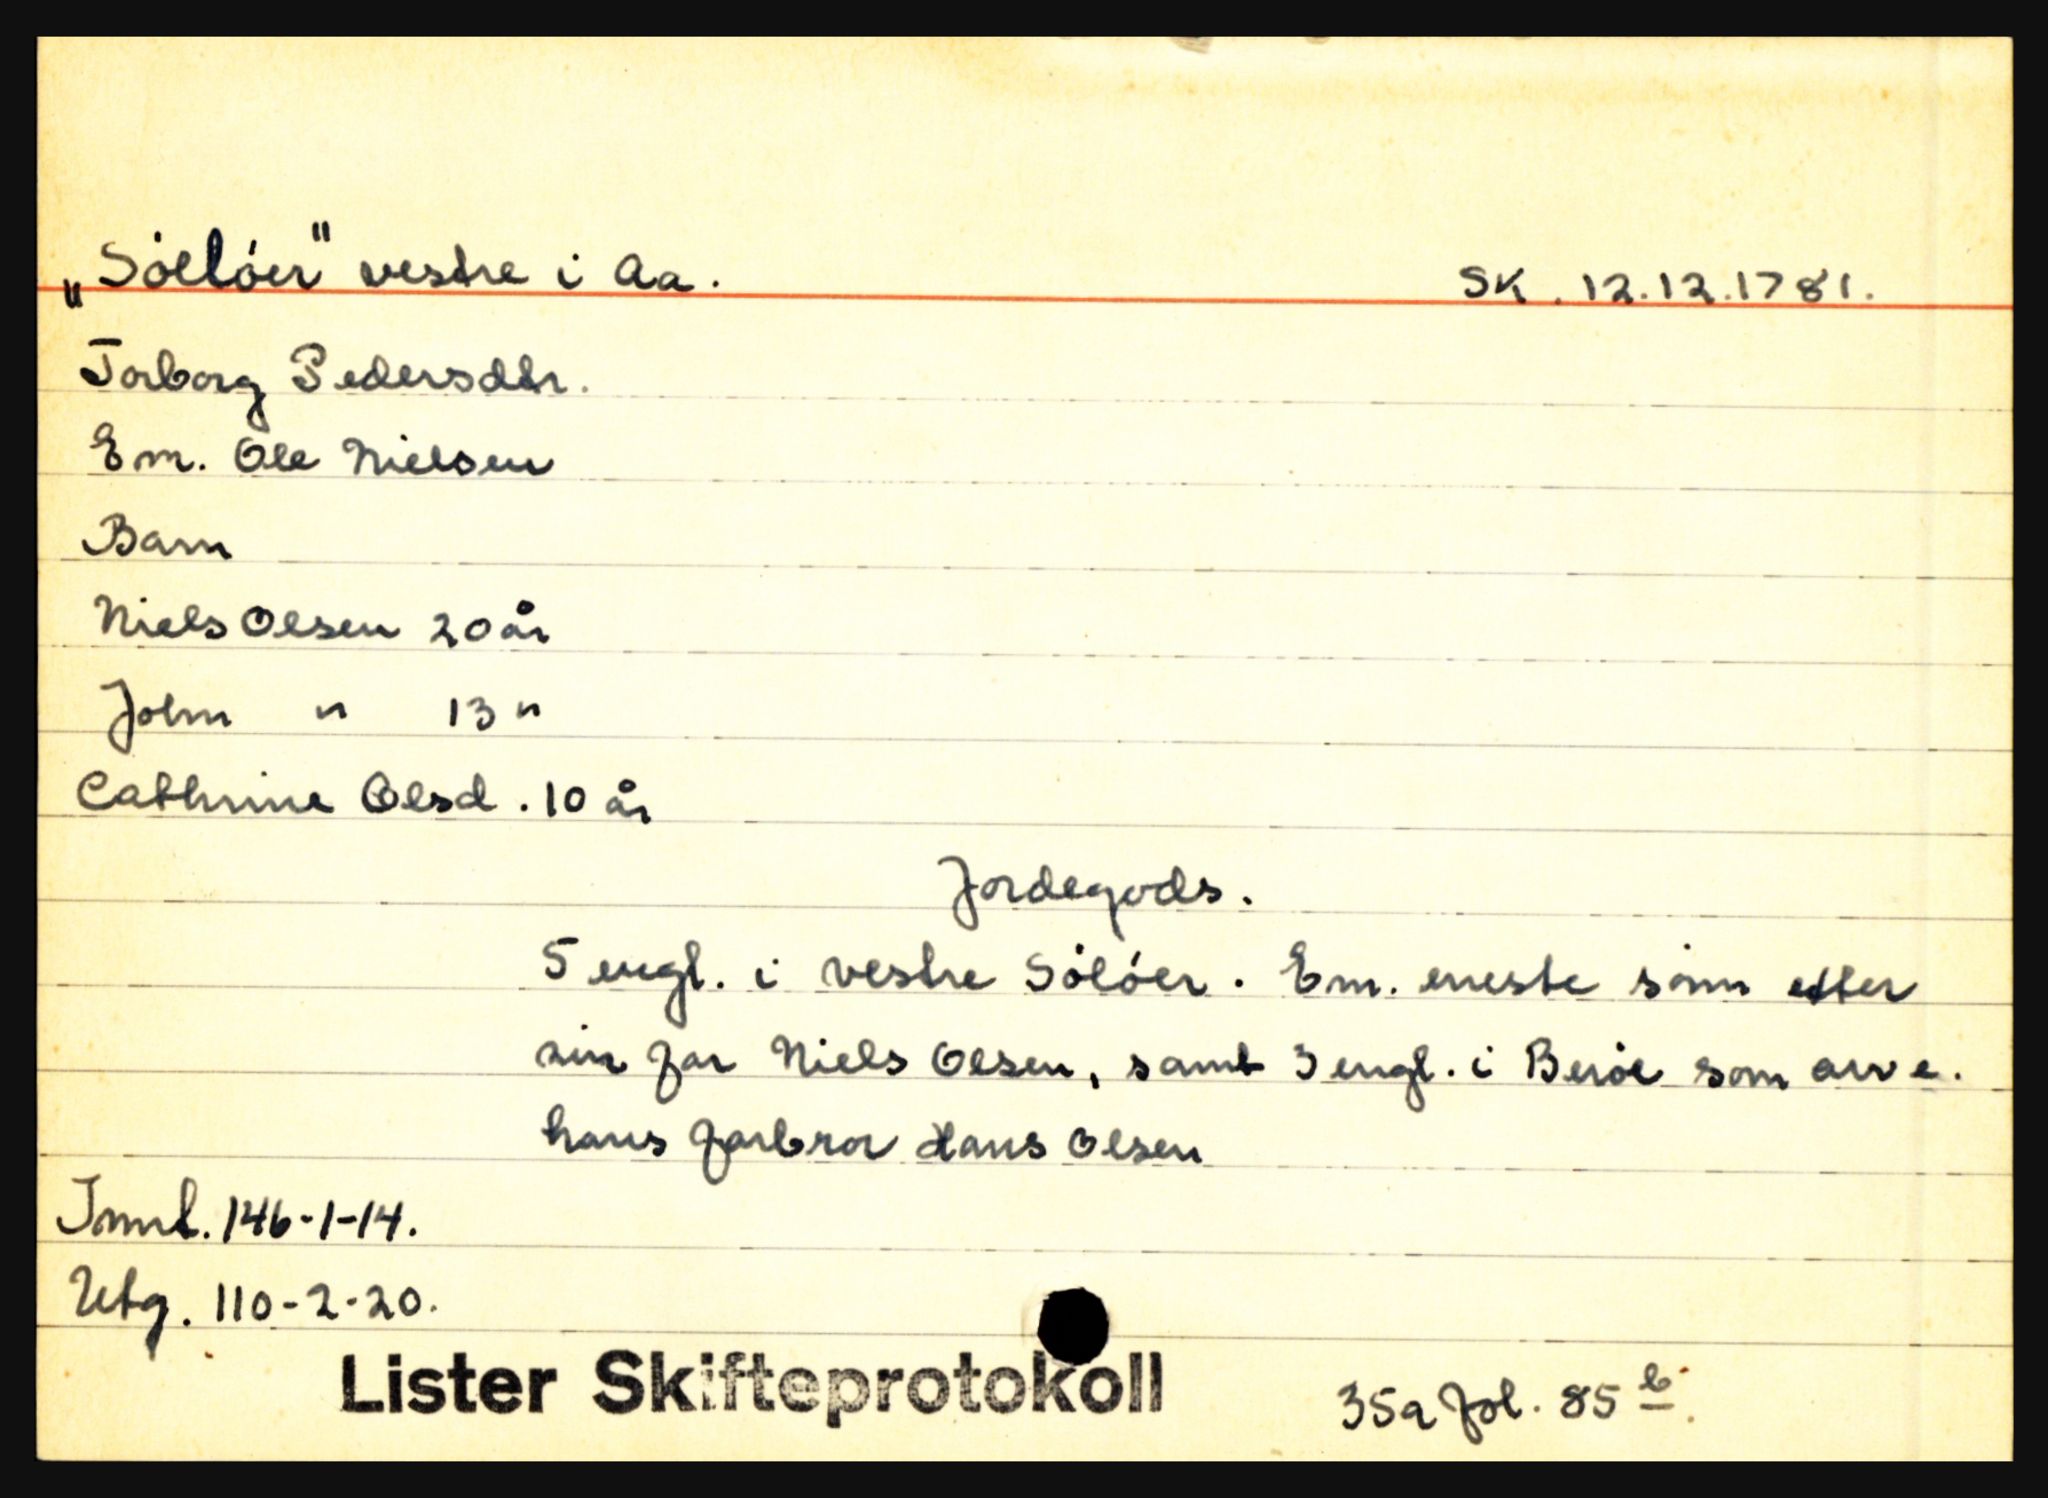 „Söeløer" vestre i Aa. SK. 12.12.1781.
Torborg Pedersdtr.
Em. Ole Nielsen
Barn
Niels Olsen 20 år
John " 13 "
Cathrine Olsd. 10 år
Jordegods.
5 engl. i vestre Søløer. Em. eneste sønn etter
sin far Niels Olsen, samt 3 engl. i Berøe som arv e.
hans farbror Hans Olsen
Innt. 146-1-14.
Utg. 110-2-20.
Lister Skifteprotokoll 35a fol. 85 b.